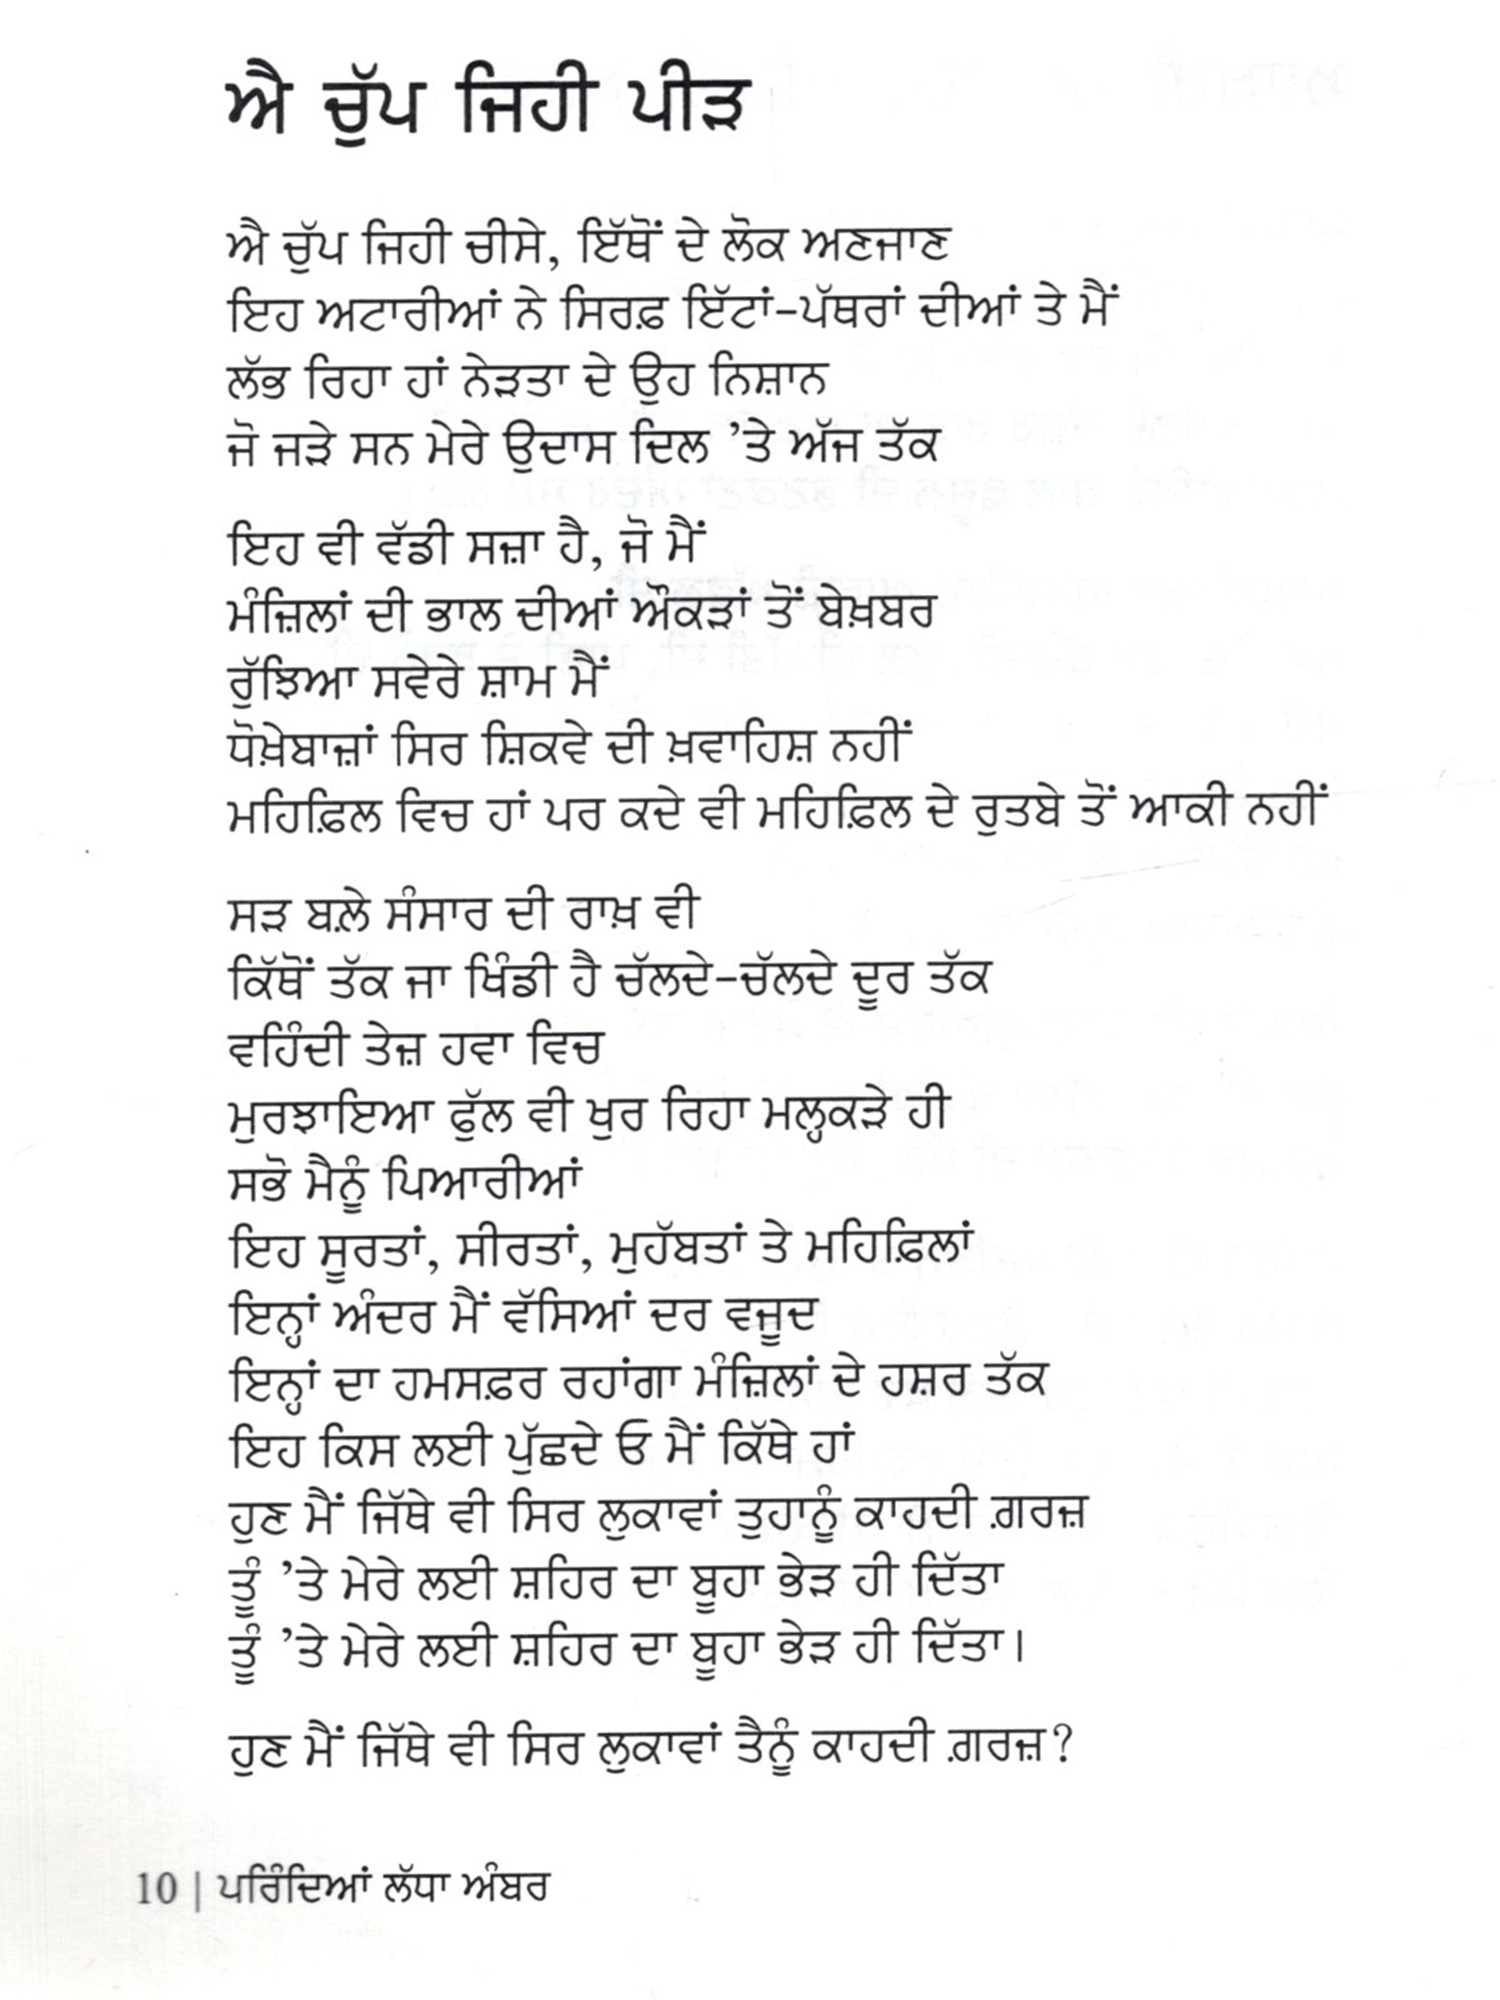 ਐ ਚੁੱਪ ਜਿਹੀ ਪੀੜ
ਐ ਚੁੱਪ ਜਿਹੀ ਚੀਸੇ, ਇੱਥੋਂ ਦੇ ਲੋਕ ਅਣਜਾਣ
ਇਹ ਅਟਾਰੀਆਂ ਨੇ ਸਿਰਫ਼ ਇੱਟਾਂ-ਪੱਥਰਾਂ ਦੀਆਂ ਤੇ ਮੈਂ
ਲੱਭ ਰਿਹਾ ਹਾਂ ਨੇੜਤਾ ਦੇ ਉਹ ਨਿਸ਼ਾਨ
ਜੋ ਜੜੇ ਸਨ ਮੇਰੇ ਉਦਾਸ ਦਿਲ ’ਤੇ ਅੱਜ ਤੱਕ
ਇਹ ਵੀ ਵੱਡੀ ਸਜ਼ਾ ਹੈ, ਜੋ ਮੈਂ
ਮੰਜ਼ਿਲਾਂ ਦੀ ਭਾਲ ਦੀਆਂ ਔਕੜਾਂ ਤੋਂ ਬੇਖ਼ਬਰ
ਰੁੱਝਿਆ ਸਵੇਰੇ ਸ਼ਾਮ ਮੈਂ
ਧੋਖ਼ੇਬਾਜ਼ਾਂ ਸਿਰ ਸ਼ਿਕਵੇ ਦੀ ਖ਼ਵਾਹਿਸ਼ ਨਹੀਂ
ਮਹਿਫ਼ਿਲ ਵਿਚ ਹਾਂ ਪਰ ਕਦੇ ਵੀ ਮਹਿਫ਼ਿਲ ਦੇ ਰੁਤਬੇ ਤੋਂ ਆਕੀ ਨਹੀਂ
ਸੜ ਬਲ਼ੇ ਸੰਸਾਰ ਦੀ ਰਾਖ਼ ਵੀ
ਕਿੱਥੋਂ ਤੱਕ ਜਾ ਖਿੰਡੀ ਹੈ ਚੱਲਦੇ-ਚੱਲਦੇ ਦੂਰ ਤੱਕ
ਵਹਿੰਦੀ ਤੇਜ਼ ਹਵਾ ਵਿਚ
ਮੁਰਝਾਇਆ ਫੁੱਲ ਵੀ ਖੁਰ ਰਿਹਾ ਮਲ੍ਹਕੜੇ ਹੀ
ਸਭੋ ਮੈਨੂੰ ਪਿਆਰੀਆਂ
ਇਹ ਸੂਰਤਾਂ, ਸੀਰਤਾਂ, ਮੁਹੱਬਤਾਂ ਤੇ ਮਹਿਫ਼ਿਲਾਂ
ਇਨ੍ਹਾਂ ਅੰਦਰ ਮੈਂ ਵੱਸਿਆਂ ਦਰ ਵਜੂਦ
ਇਨ੍ਹਾਂ ਦਾ ਹਮਸਫ਼ਰ ਰਹਾਂਗਾ ਮੰਜ਼ਿਲਾਂ ਦੇ ਹਸ਼ਰ ਤੱਕ
ਇਹ ਕਿਸ ਲਈ ਪੁੱਛਦੇ ਓ ਮੈਂ ਕਿੱਥੇ ਹਾਂ
ਹੁਣ ਮੈਂ ਜਿੱਥੇ ਵੀ ਸਿਰ ਲੁਕਾਵਾਂ ਤੁਹਾਨੂੰ ਕਾਹਦੀ ਗ਼ਰਜ਼
ਤੂੰ ’ਤੇ ਮੇਰੇ ਲਈ ਸ਼ਹਿਰ ਦਾ ਬੂਹਾ ਭੇੜ ਹੀ ਦਿੱਤਾ
ਤੂੰ ’ਤੇ ਮੇਰੇ ਲਈ ਸ਼ਹਿਰ ਦਾ ਬੂਹਾ ਭੇੜ ਹੀ ਦਿੱਤਾ।
ਹੁਣ ਮੈਂ ਜਿੱਥੇ ਵੀ ਸਿਰ ਲੁਕਾਵਾਂ ਤੈਨੂੰ ਕਾਹਦੀ ਗ਼ਰਜ਼?
10 | ਪਰਿੰਦਿਆਂ ਲੱਧਾ ਅੰਬਰ